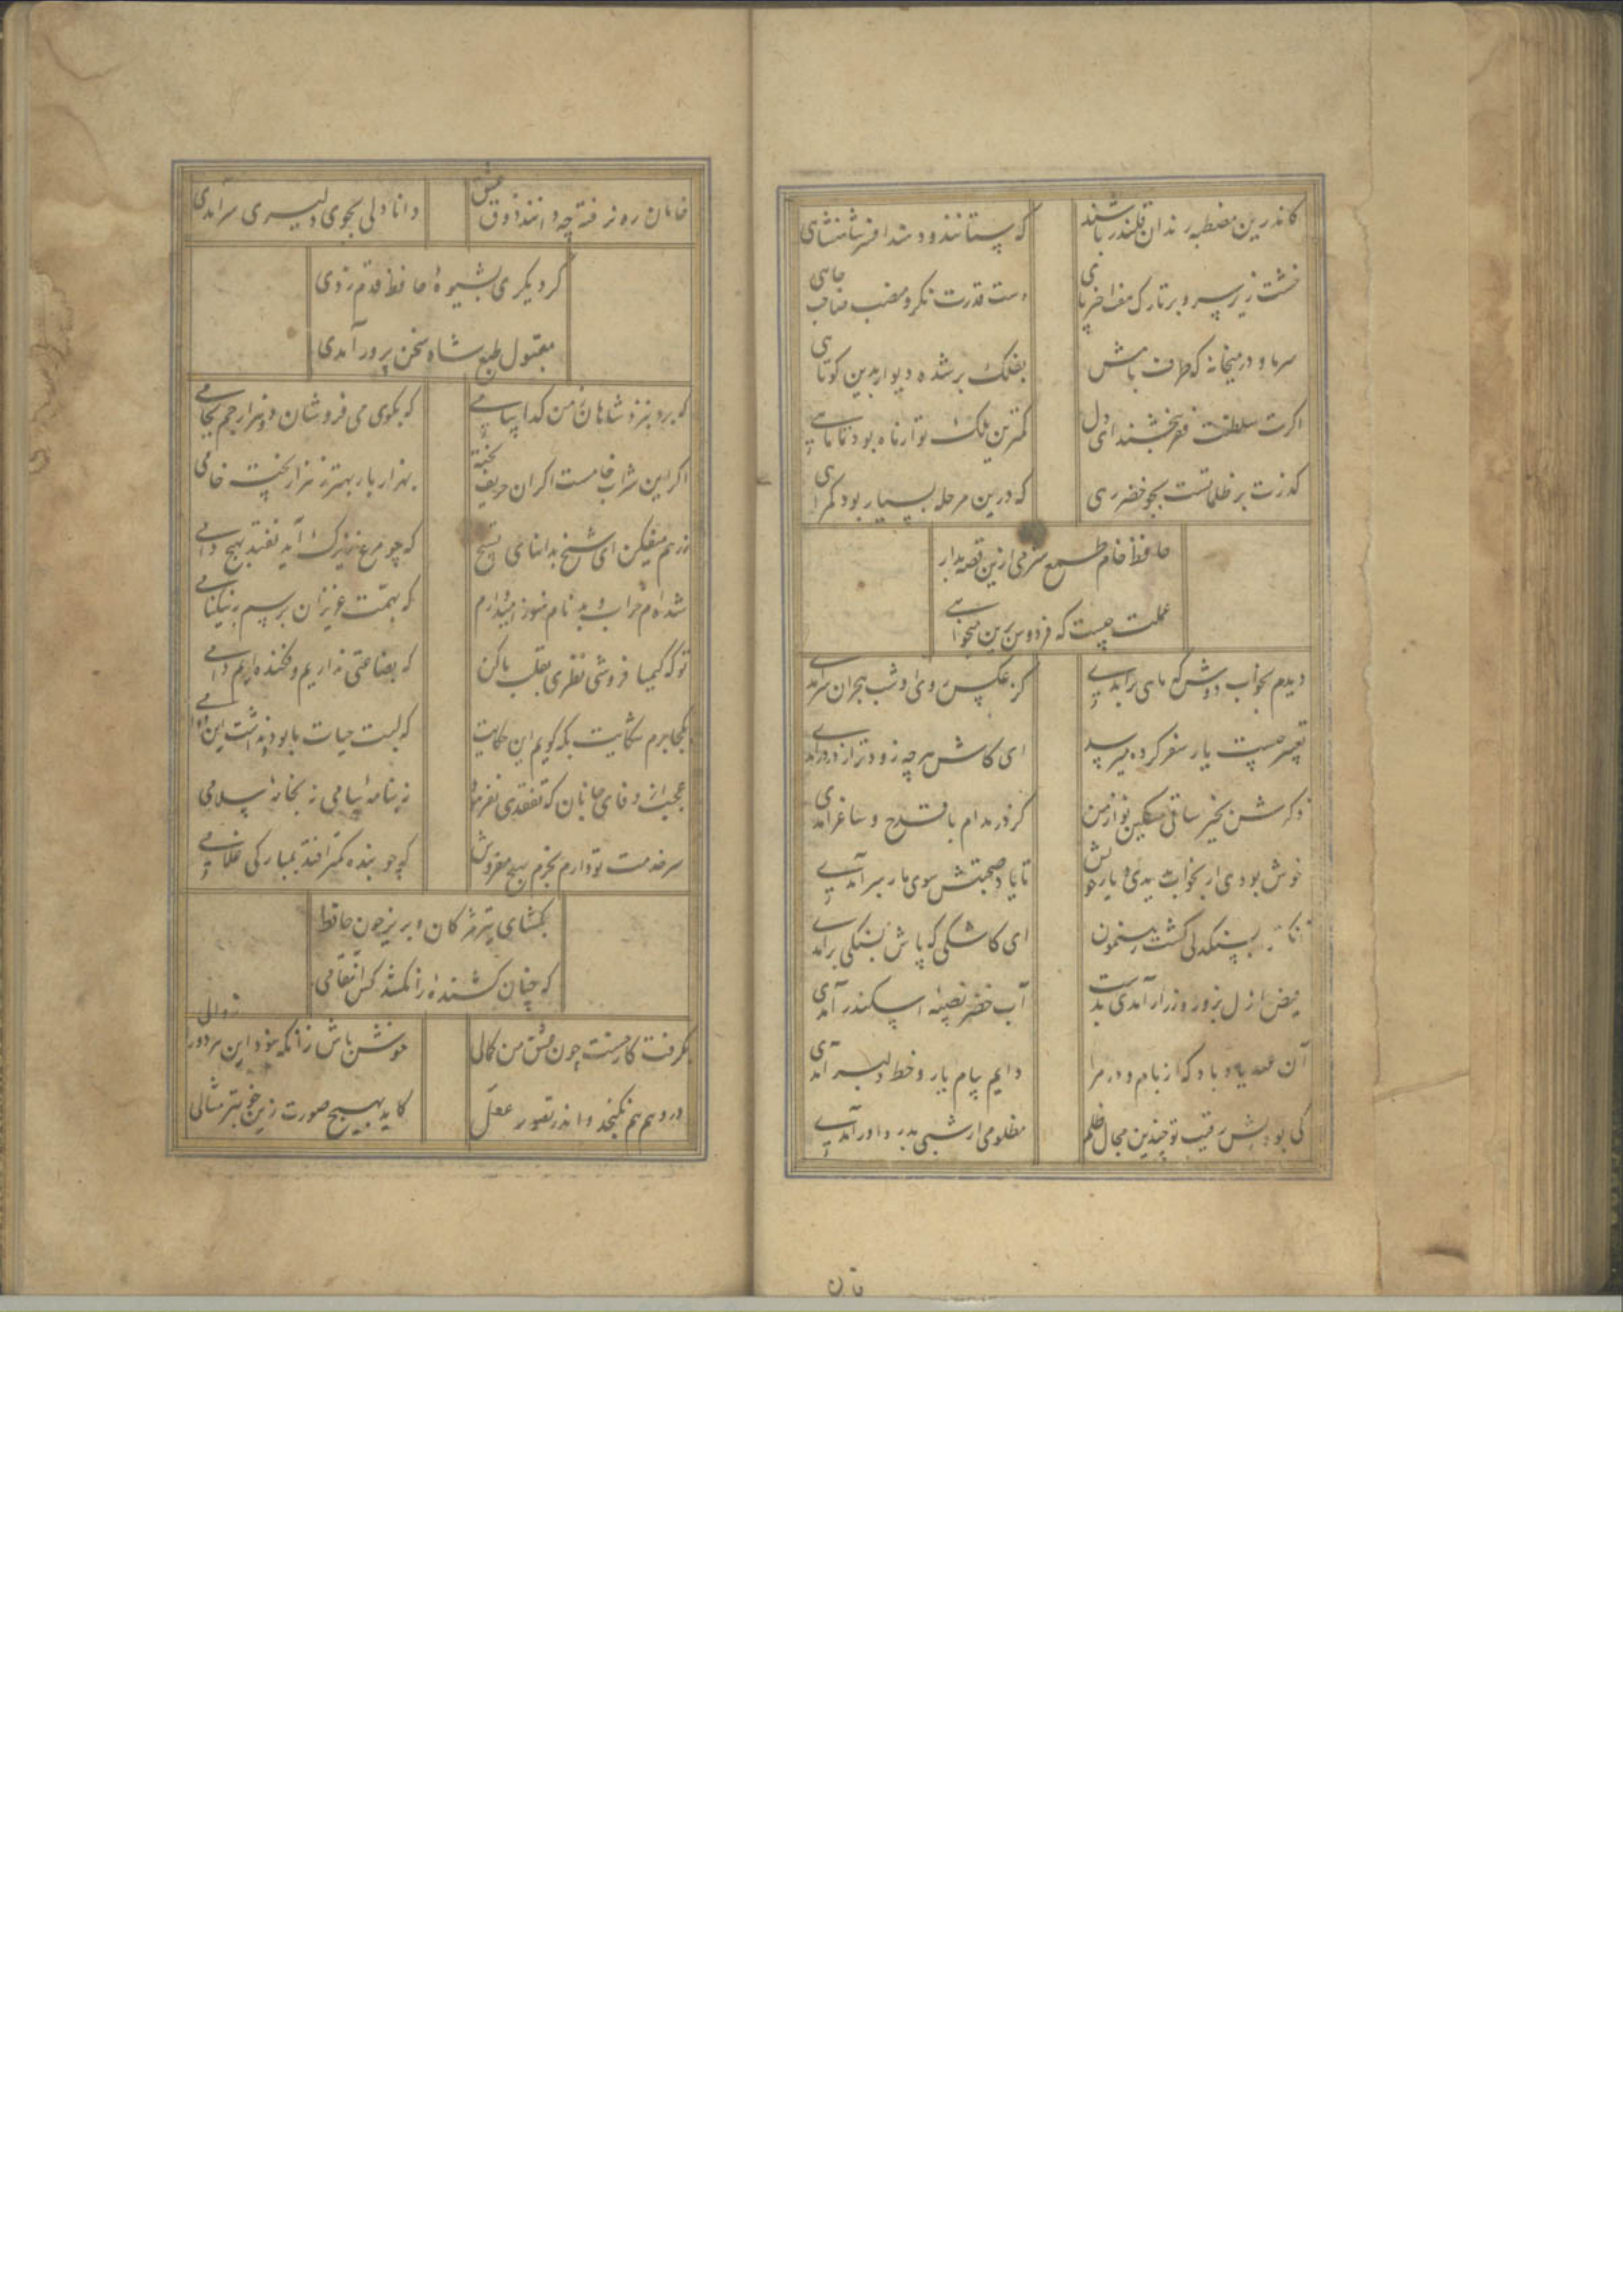 کاندرین مصطبه رندان قلندر باشند
که ستانند و دهند افسر شاهنشاهی
خشت زیر سر و بر تارک هفت اختر پای
دست قدرت نکر و منصب صاحب جاهی
سر ما و در میخانه که طرف بامش
بفلک بر شده دیوار بدین کوتاهی
اکرت سلطنت فقر ببخشند ای دل
کمترین ملک تو از ماه بود تا ماهی
کذرت بر ظلماتست بجو خضر رهی
که درین مرحله بسیار بود کمراهی
حافظ خام طمع شرمی ازین قصه بدار
عملت چیست که فردوس برین میخواهی
دیدم بخواب دوش که ماهی برآمدی
کز عکس روی او شب هجران سرآمدی
تعبیر چیست یار سفر کرده میرسد
ای کاش هر چه زودتر از در درآمدی
ذکرش بخیر ساقی مسکین نواز من
کز در مدام با قدح و ساغر آمدی
خوش بودی ار بخواب بدیدی دیار خویش
تا یاد صحبتش سوی ما رهبر آمدی
آنکو ترا بسنکدلی کشت رهنمون
ای کاشکی که پاش بسنکی برآمدی
فیض ازل بزور و زر ار آمدی بدست
آب خضر نصیبه اسکندر آمدی
آن عهد یاد باد که از بام و در مرا
دایم پیام یار و خط دلبر آمدی
کی بودیش رقیب تو چندین مجال ظلم
مظلومی ار شبی بدر داور آمدی
خامان ره نرفته چه دانند ذوق عشق
دانا دلی بجوی دلیری سرآمدی
کر دیکری بشیوهٔ حافظ قدم زدی
مقبول طبع شاه سخن پرور آمدی
که برد بنزد شاهان ز من کدا پیامی
که بکوی می فروشان دو هزار جم بجامی
اکر این شراب خامست اکر آن حریف پخته
بهزار بار بهتر ز هزار پخته خامی
ز رهم میفکن ای شیخ بدانهای تسبیح
که چو مرغ زیرک آید نفتد بهیچ دامی
شده‌ام خراب و بدنام و هنوز امیدوارم
که بهمت عزیزان برسم بنیکنامی
تو که کیمیا فروشی نظری بقلب ما کن
که بضاعتی نداریم و فکنده‌ایم دامی
بکجا برم شکایت بکه کویم این حکایت
که لبت حیات ما بود و نداشت این دوامی
عجب از وفای جانان که تفقدی نفرمود
نه بنامهٔ پیامی نه بخانهٔ سلامی
سر خدمت تو دارم بخرم بهیچ مفروش
که چو بنده کمتر افتد بمبارکی غلامی
بکشای تیر مژکان و بریز خون حافظ
که چنان کشندهٔ را نکشد کس انتقامی
بکرفت کار حسنت چون عشق من کمالی
خوش باش زانکه نبود این هر دو را زوالی
در وهم هم نکنجد و اندر تصور عقل
کاید بهیچ صورت زین خوبتر مثالی